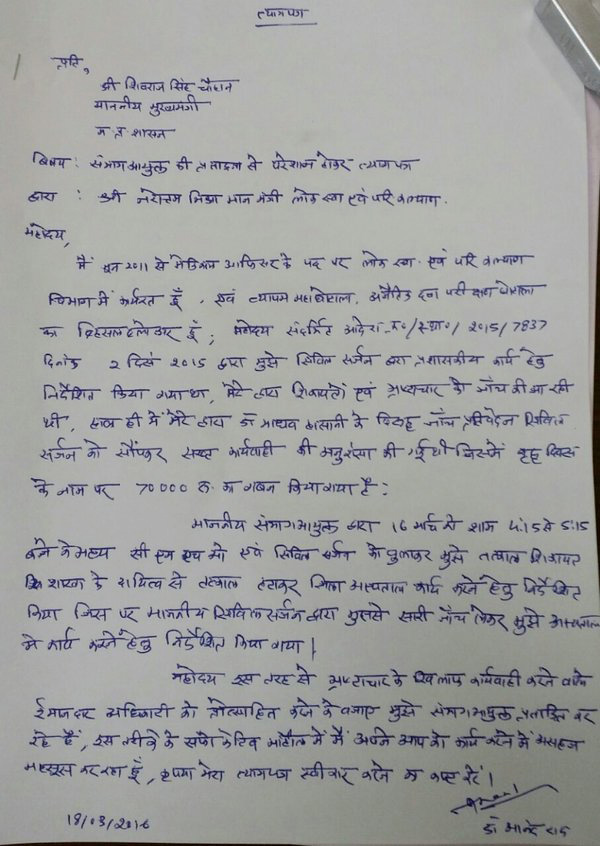 त्यागपत्र
प्रति,
श्री शिवराज सिंह चौहान
माननीय मुख्यमंत्री
म प्र शासन
विषय : संभागआयुक्त की प्रताड़ना से परेशान होकर त्यागपत्र
द्वारा : श्री नरोत्तम मिश्रा मान मंत्री लोक स्वा एवं परि कल्याण.
महोदय,
मैं जून 2011 से मेडिकल आफिसर के पद पर लोक स्वा. एवं परि कल्याण
विभाग में कार्यरत हूँ, एवं व्यापम महाघोटाला, अनैतिक दवा परीक्षण घोटाला
का व्हिसलब्लोअर हूँ, महोदय संदर्भित आदेश क्र०/स्था०/2015/7837
दिनांक 2 दिसं 2015 द्वारा मुझे सिविल सर्जन द्वारा प्रशासकीय कार्य हेतु
निर्देशित किया गया था, मेरे द्वारा शिकायतों एवं भ्रष्टाचार की जाँच की जा रही
थी, हाल ही में मेरे द्वारा डॉ माधव हासानी के विरुद्ध जाँच प्रतिवेदन सिविल
सर्जन को सौंपकर सख्त कार्यवाही की अनुशंसा की गई थी जिसमें
के नाम पर 70000 रु. का गबन किया गया है :
माननीय संभागआयुक्त द्वारा 16 मार्च को शाम 4:15 से 5:15
बजे के मध्य सी एम एच ओ एवं सिविल सर्जन को बुलाकर मुझे तत्काल शिकायत
शाखा के दायित्व से तत्काल हटाकर जिला अस्पताल कार्य करने हेतु निर्देशित
किया जिस पर माननीय सिविल सर्जन द्वारा मुझसे सारी जाँच लेकर मुझे अस्पताल
में कार्य करने हेतु निर्देशित किया गया |
महोदय इस तरह से भ्रष्टाचार के खिलाफ कार्यवाही करने वाले
ईमानदार अधिकारी को प्रोत्साहित करने के बजाए मुझे संभागआयुक्त प्रताड़ित कर
रहे हैं, इस तरीके के माहौल में मैं अपने आप को कार्य करने में असहज
महसूस कर रहा हूँ, कृपया मेरा त्यागपत्र स्वीकार करने का कष्ट करें |
18/03/2016
डॉ आनंद राय